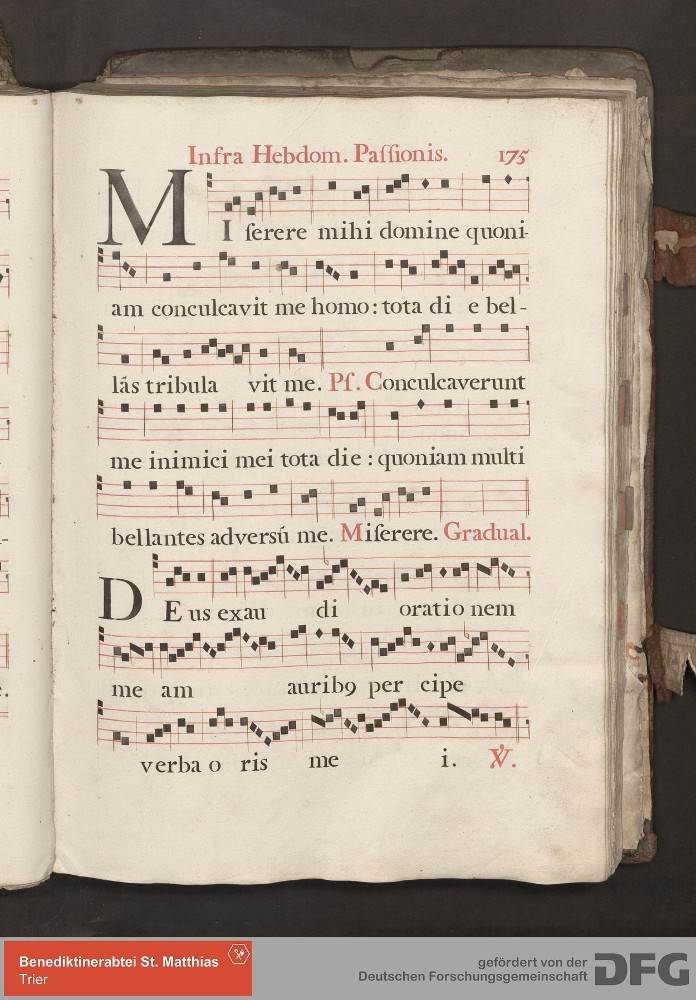 Infra Hebdom. Paſſionis. 175
MI ſerere mihi domine quoni-
am conculcavit me homo: tota di e bel-
lãs tribula vit me. Pſ. Conculcaverunt
me inimici mei tota die: quoniam multi
bellantes adversũ me. Miſerere. Gradual.
DE us exau di oratio nem
me am auribꝯ per cipe
verba o ris me i. ℣.
Benediktinerabtei St. Matthias
Trier
gefördert von der
Deutschen Forschungsgemeinschaft
DFG